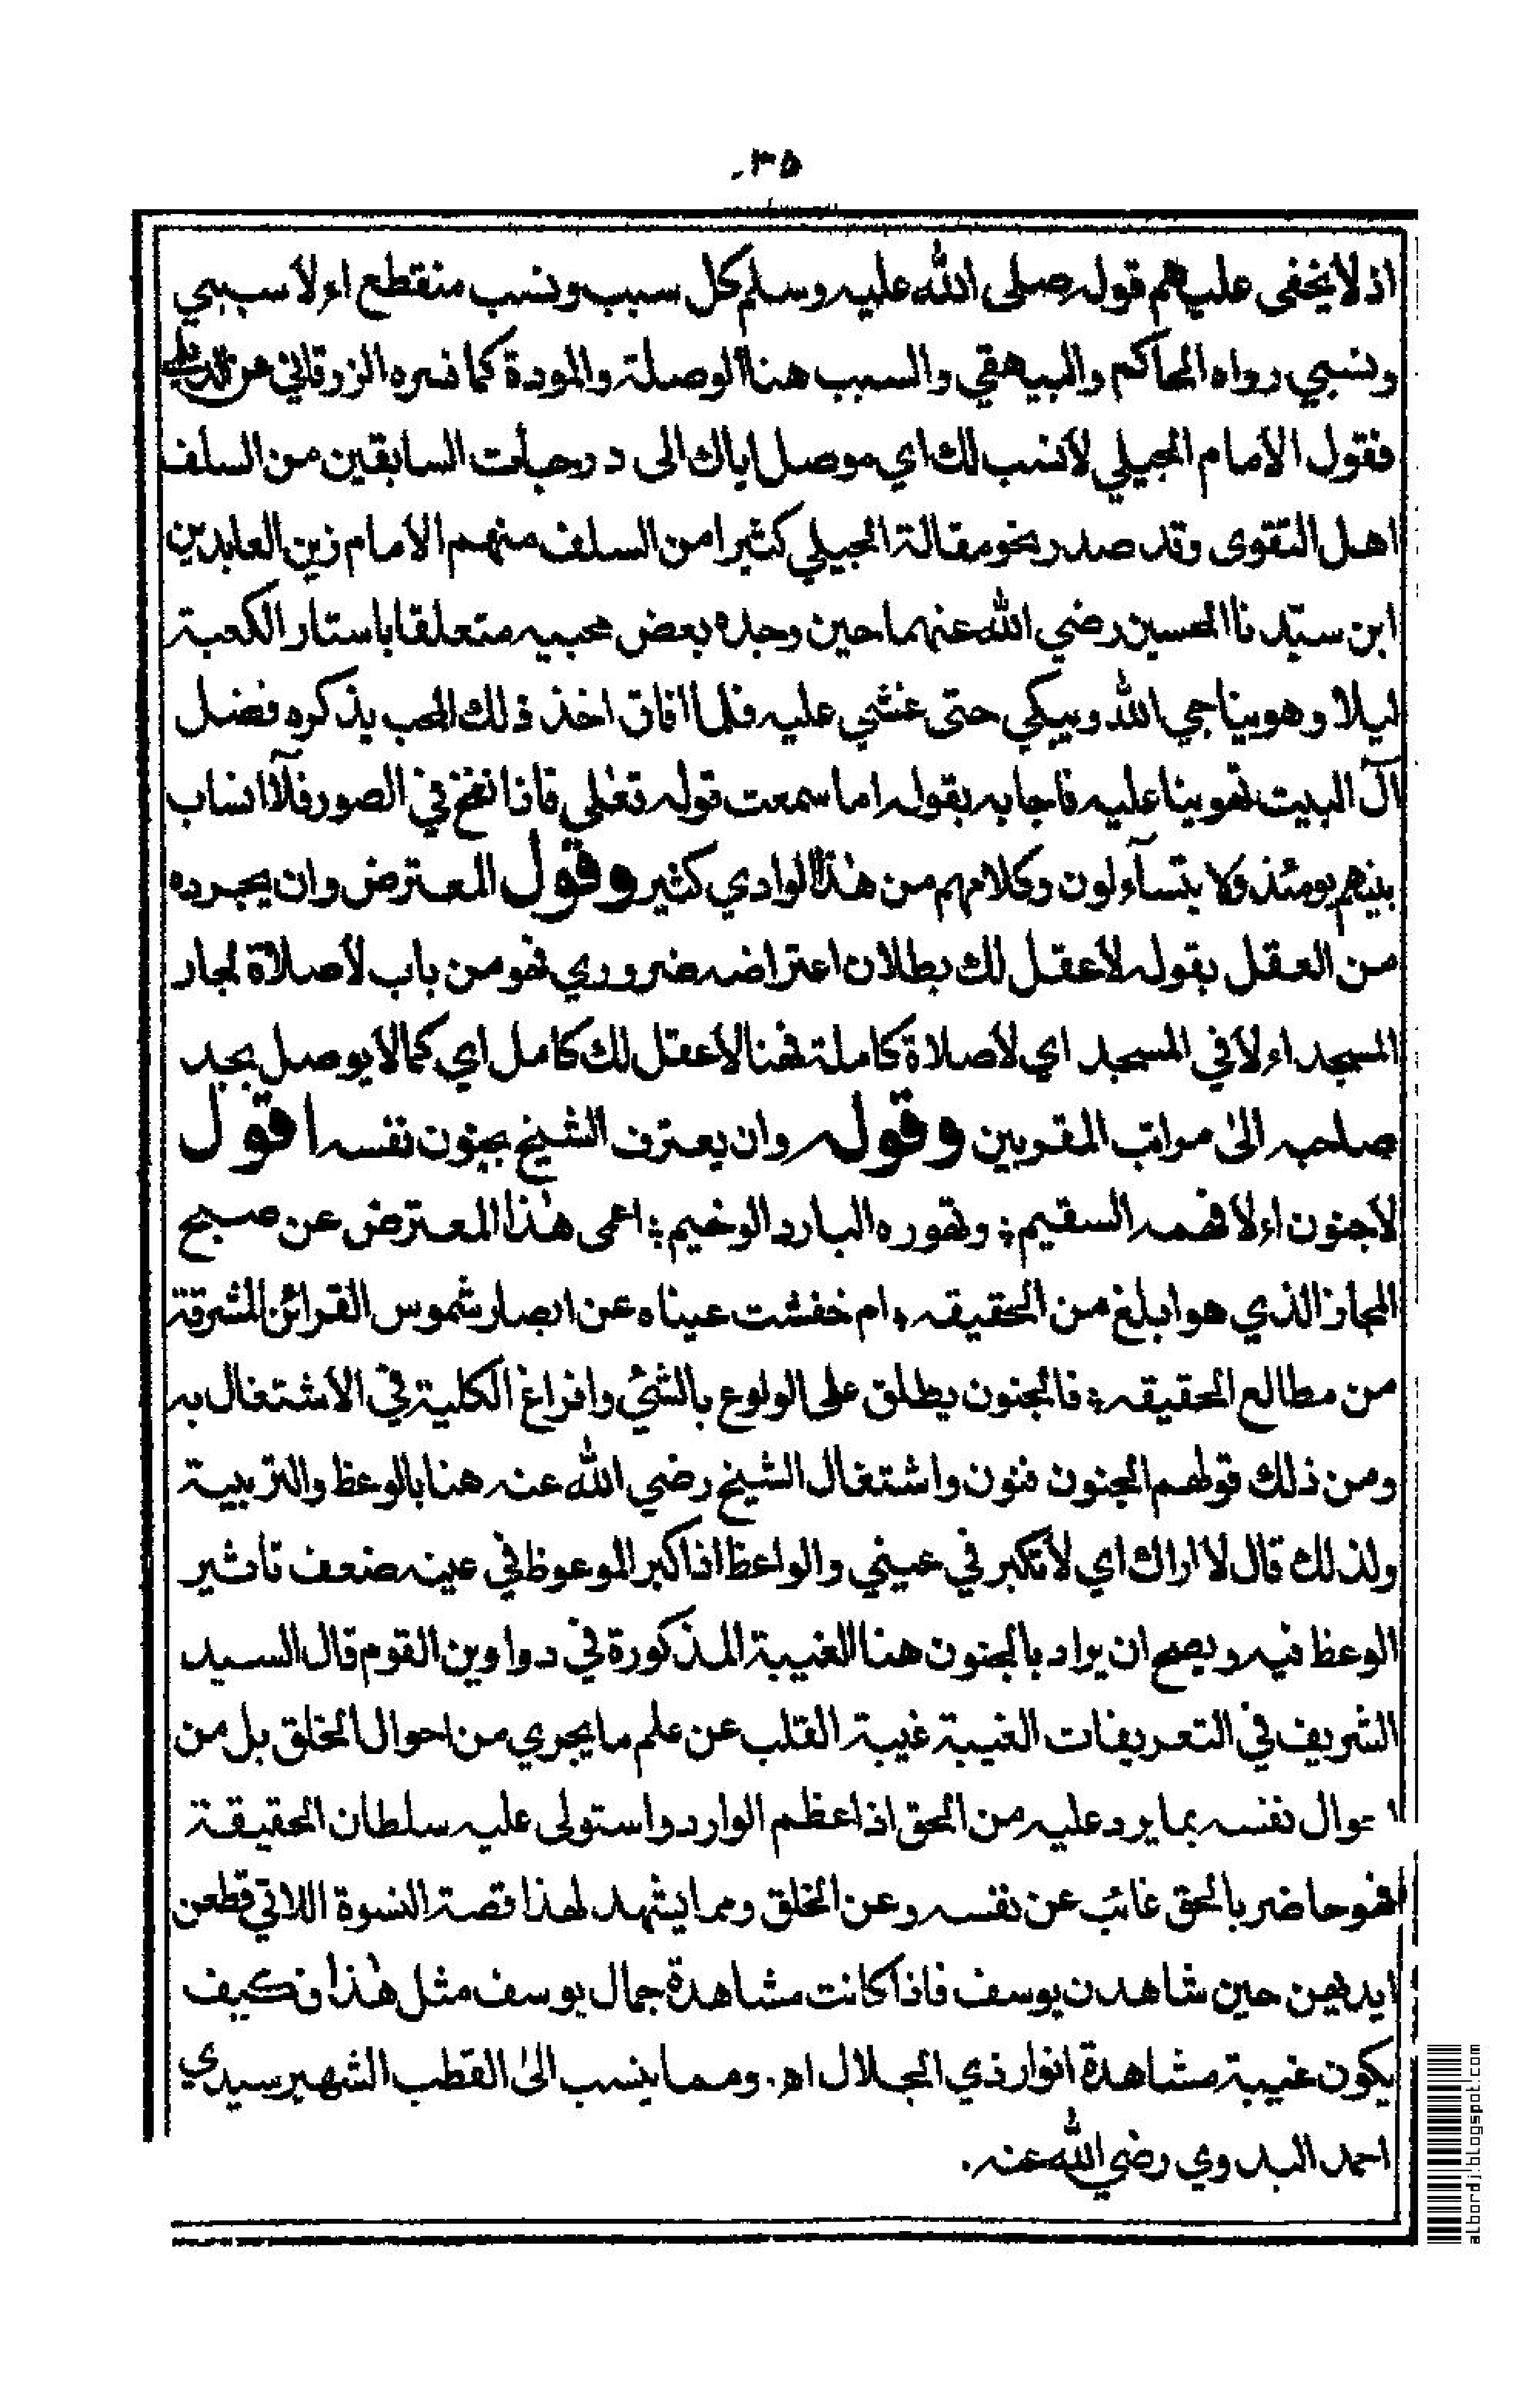 ٣٥
اذ لا يخفى عليهم قوله صلى الله عليه وسلم كل سبب ونسب منقطع الا سببي
ونسبي رواه الحاكم والبيهقي والسبب هنا الوصلة والمودة كما فسره الزرقاني عن
فقول الامام الجيلي لا نسب لك اي موصل اياك الى درجات السابقين من السلف
اهل التقوى وقد صدر نحو مقالة الجيلي كثيرا من السلف منهم الامام زين العابدين
ابن سيدنا الحسين رضي الله عنهما حين وجده بعض محبيه متعلقا باستار الكعبة
ليلا وهو يناجي الله ويبكي حتى غشي عليه فلما افاق اخذ ذلك المحب يذكره فضل
آل البيت تهوينا عليه فاجابه بقوله اما سمعت قوله تعالى فاذا نفخ في الصور فلا انساب
بينهم يومئذ ولا يتسآءلون وكلامهم من هذا الوادي كثير وقول المعترض وان يجرده
من العقل بقوله لا عقل لك بطلان اعتراضه ضروري فهو من باب لا صلاة لجار
المسجد الا في المسجد اي لا صلاة كاملة فهنا لا عقل لك كامل اي كمالا يوصل بجد
صاحبه الى مراتب المقربين وقوله وان يعترف الشيخ بجنون نفسه اقول
لا جنون الا فهمه السقيم ؛ وتهوره البارد الوخيم ؛ اعمى هذا المعترض عن صبح
المجاز الذي هو ابلغ من الحقيقه ؛ ام خفشت عيناه عن ابصار شموس القرائن المشرقة
من مطالع الحقيقه ؛ فالجنون يطلق على الولوع بالشئ وافراغ الكلية في الاشتغال به
ومن ذلك قولهم الجنون فنون واشتغال الشيخ رضي الله عنه هنا بالوعظ والتربية
ولذلك قال لا اراك اي لا تكبر في عيني والواعظ اذا كبر الموعوظ في عينه ضعف تاثير
الوعظ فيه ويصح ان يراد بالجنون هنا الغيبة المذكورة في دواوين القوم قال السيد
الشريف في التعريفات الغيبة غيبة القلب عن علم ما يجري من احوال الخلق بل من
احوال نفسه بما يرد عليه من الحق اذا عظم الوارد واستولى عليه سلطان الحقيقة
فهو حاضر بالحق غائب عن نفسه وعن الخلق ومما يشهد لهذا قصة النسوة اللاتي قطعن
ايديهن حين شاهدن يوسف فاذا كانت مشاهدة جمال يوسف مثل هذا فكيف
يكون غيبة مشاهدة انوار ذي الجلال اه. ومما ينسب الى القطب الشهير سيدي
احمد البدوي رضي الله عنه.
albordj.blogspot.com